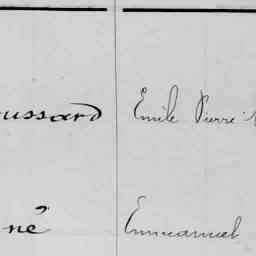 ussard Emile Pierre
né Emmanuel